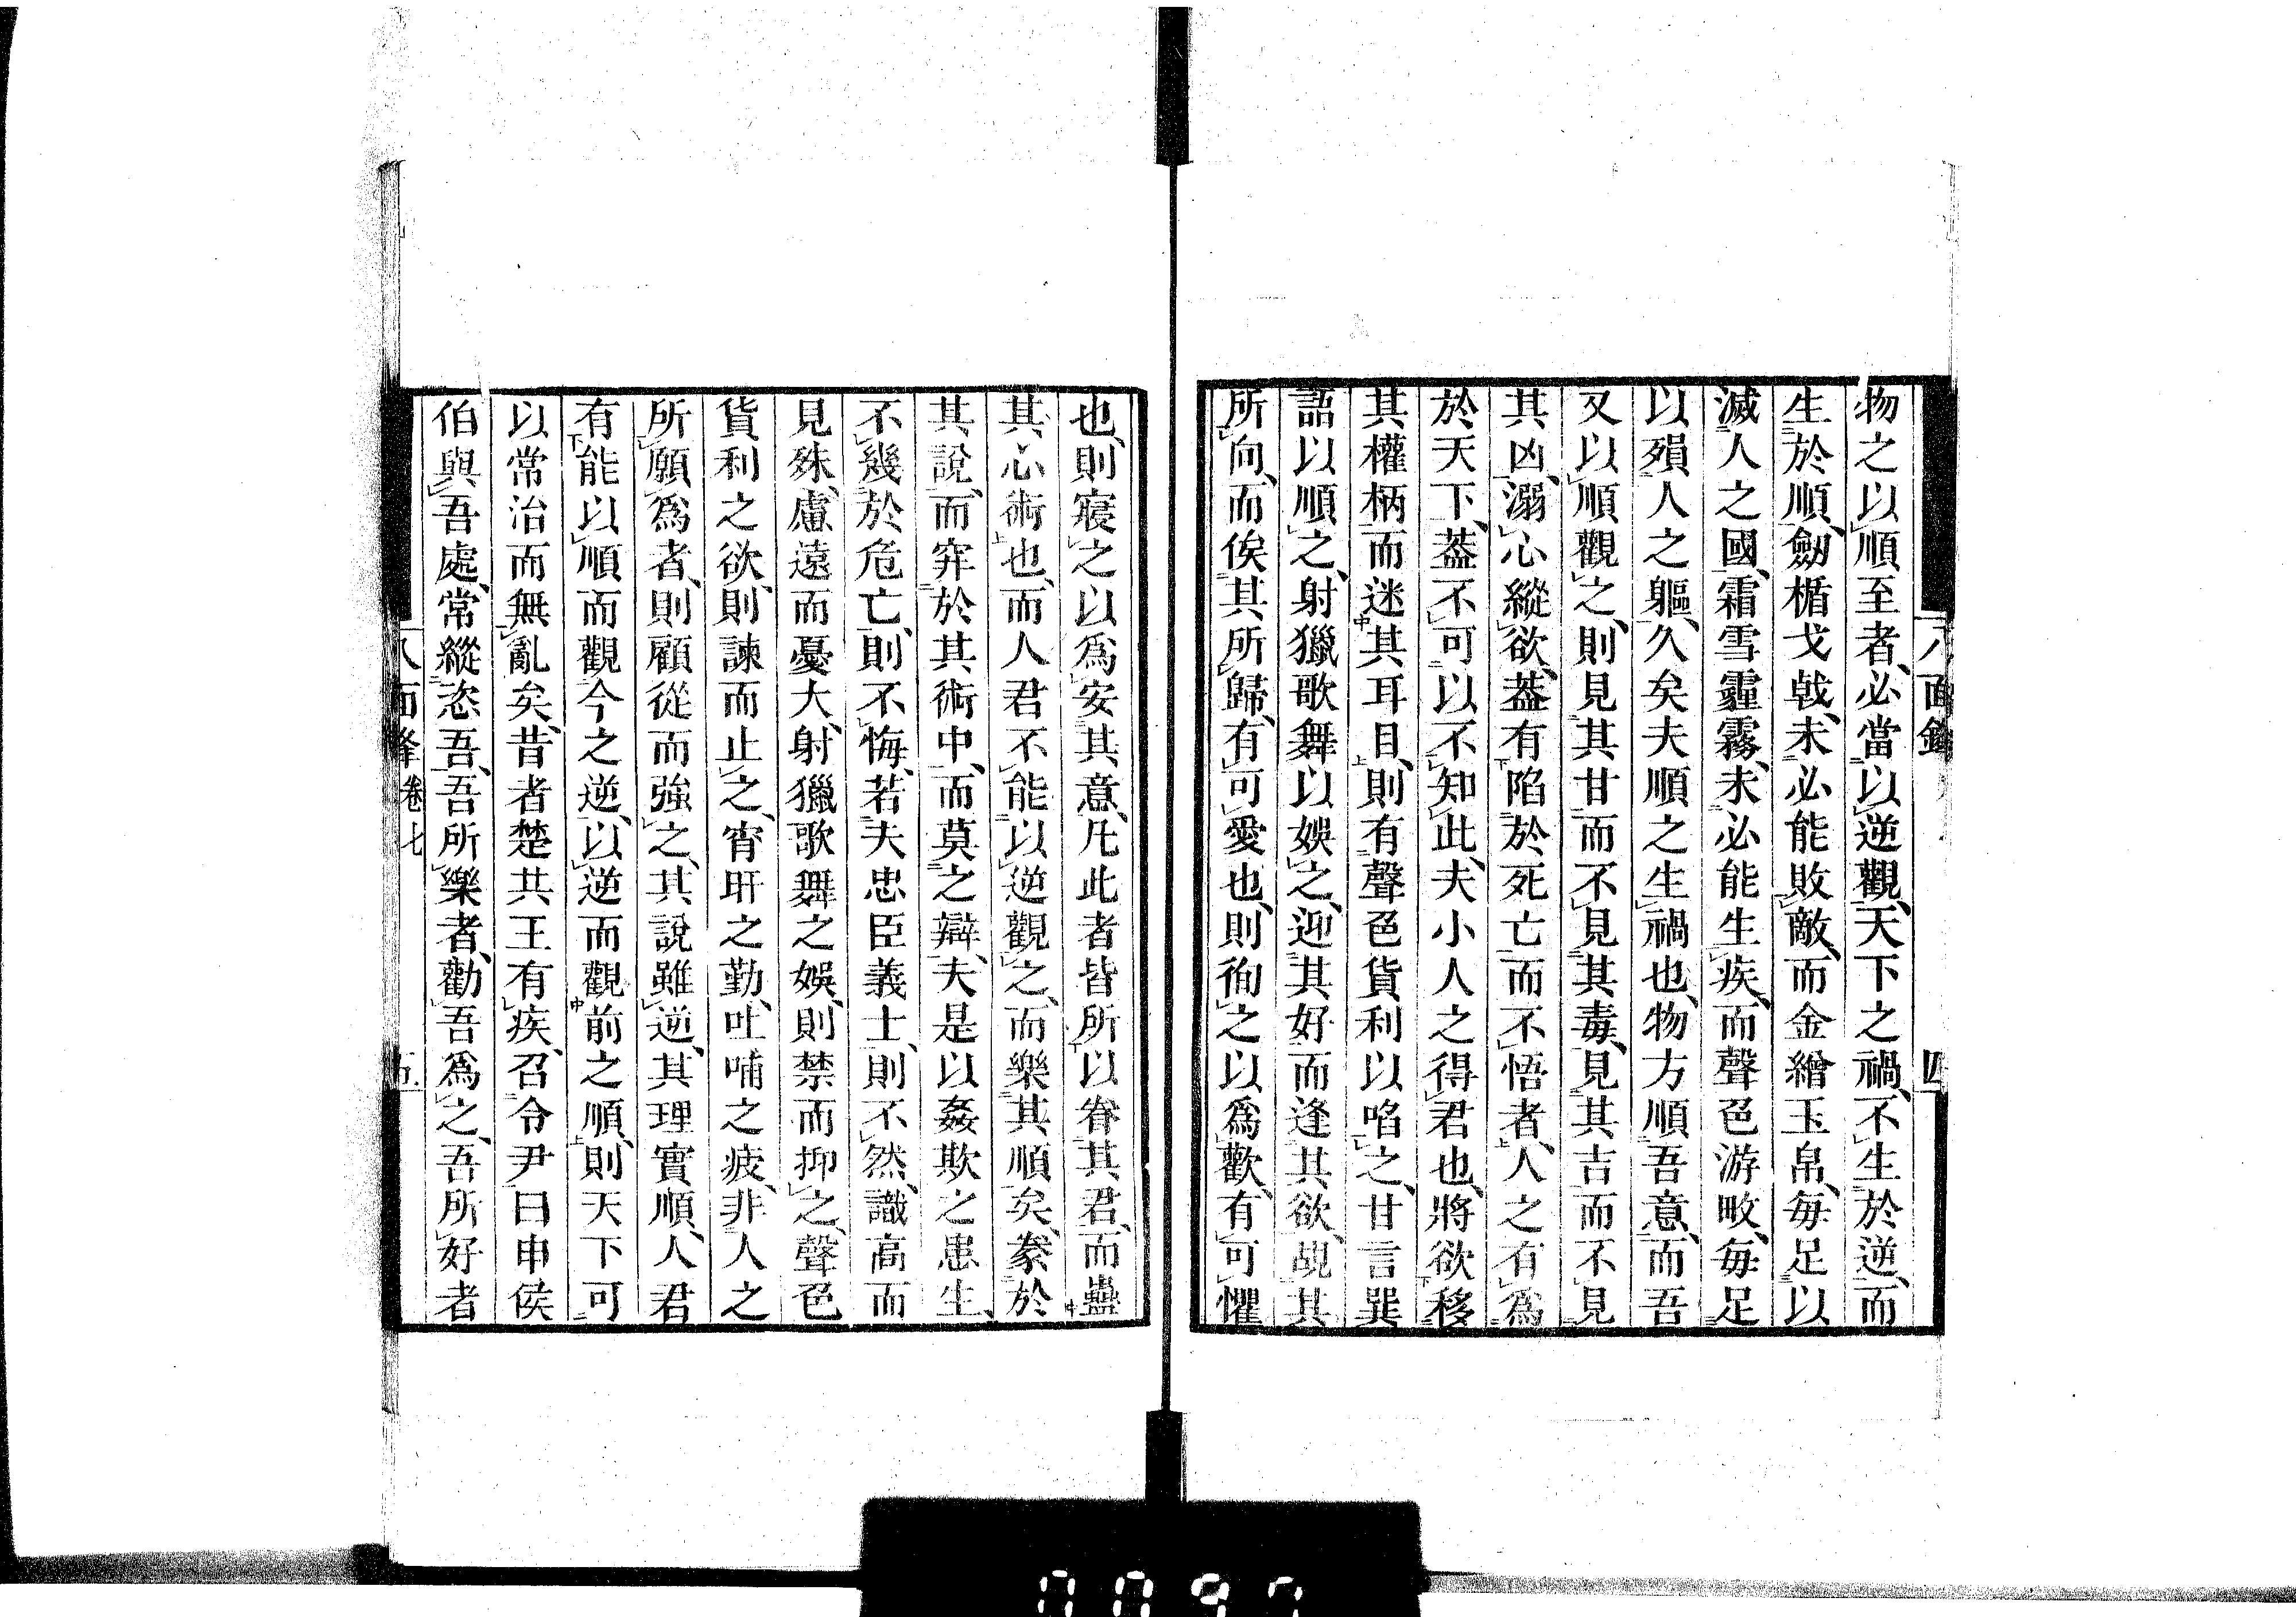 物之以順至者、必當以逆觀、天下之禍、不生於逆、而
生於順、劒楯戈戟、未必能敗敵、而金繒玉帛、毎足以
滅人之國、霜雪霾霧、未必能生疾、而聲色游畋、毎足
以殞人之軀、久矣夫順之生禍也、物方順吾意、而吾
又以順觀之、則見其甘而不見其毒、見其吉而不見
其凶、溺心縱欲、葢有陷於死亡而不悟者、人之有爲
於天下、葢不可以不知此、夫小人之得君也、將欲移
其權柄而迷其耳目、則有聲色貨利以啗之、甘言巽
語以順之、射獵歌舞以娛之、迎其好而逢其欲、覘其
所向、而俟其所歸、有可愛也、則徇之以爲歡、有可懼
也、則寢之以爲安其意、凡此者皆所以眷其君、而蠱
其心術也、而人君不能以逆觀之、而樂其順矣、豢於
其說、而穽於其術中、而莫之辯、夫是以姦欺之患生、
不幾於危亡、則不悔、若夫忠臣義士、則不然、識高而
見殊、慮遠而憂大、射獵歌舞之娛、則禁而抑之、聲色
貨利之欲、則諫而止之、宵旰之勤、吐哺之疲、非人之
所願爲者、則顧從而強之、其說雖逆、其理實順、人君
有能以順而觀今之逆、以逆而觀前之順、則天下可
以常治而無亂矣、昔者楚共王有疾、召令尹曰申侯
伯與吾處、常縱恣吾、吾所樂者、勸吾爲之、吾所好者
八面鋒 四
八面鋒 卷七 五
0097